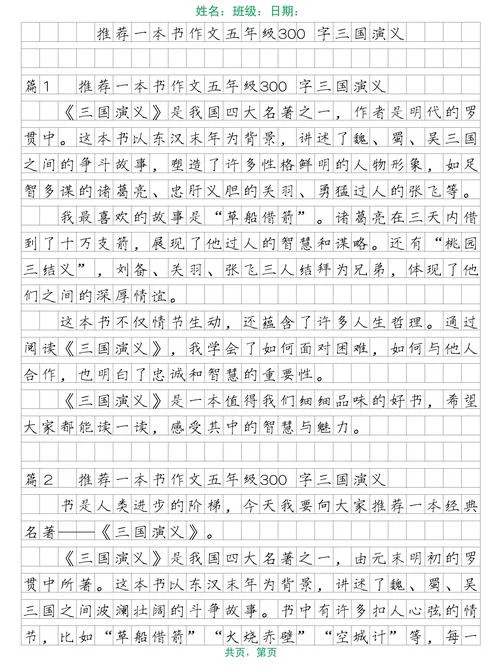 姓名：班级：日期：
推荐一本书作文五年级300 字三国演义
篇1 推荐一本书作文五年级300 字三国演义
《三国演义》是我国四大名著之一，作者是明代的罗
贯中。这本书以东汉末年为背景，讲述了魏、蜀、吴三国
之间的争斗故事，塑造了许多性格鲜明的人物形象，如足
智多谋的诸葛亮、忠肝义胆的关羽、勇猛过人的张飞等。
我最喜欢的故事是“草船借箭”。诸葛亮在三天内借
到了十万支箭，展现了他过人的智慧和谋略。还有“桃园
三结义”，刘备、关羽、张飞三人结拜为兄弟，体现了他
们之间的深厚情谊。
这本书不仅情节生动，还蕴含了许多人生哲理。通过
阅读《三国演义》，我学会了如何面对困难，如何与他人
合作，也明白了忠诚和智慧的重要性。
《三国演义》是一本值得我们细细品味的好书，希望
大家都能读一读，感受其中的智慧与魅力。
篇2 推荐一本书作文五年级300 字三国演义
书是人类进步的阶梯，今天我要向大家推荐一本经典
名著——《三国演义》。
《三国演义》是我国四大名著之一，由元末明初的罗
贯中所著。这本书以东汉末年为背景，讲述了魏、蜀、吴
三国之间波澜壮阔的斗争故事。书中有许多扣人心弦的情
节，比如“草船借箭”“火烧赤壁”“空城计”等，每一
共页，第页